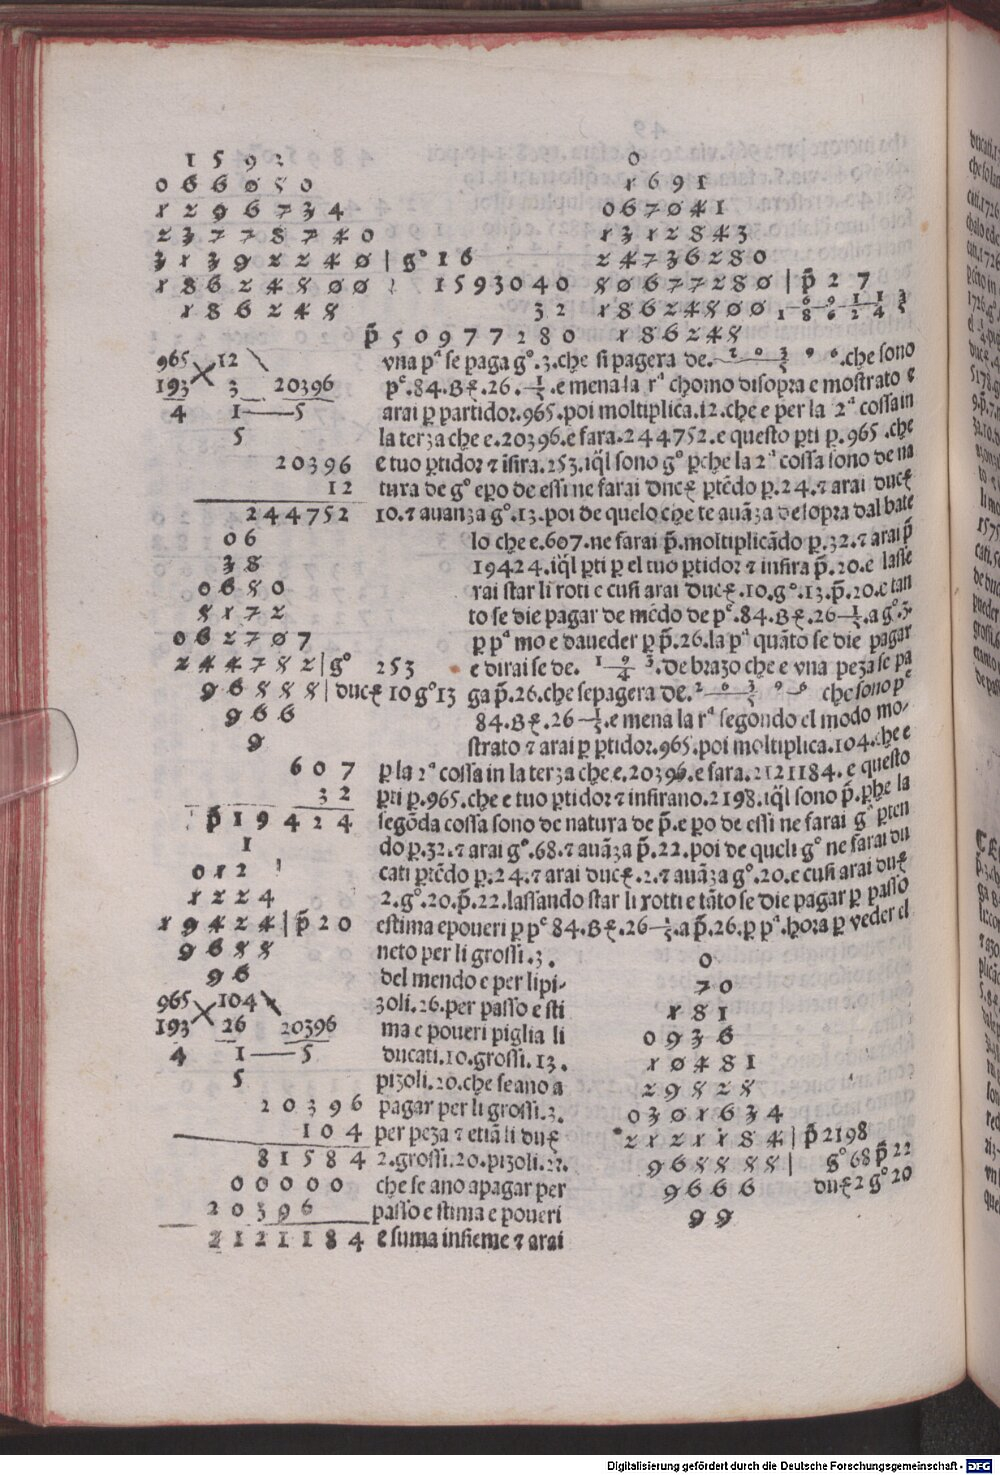 1 5 9 3
0 6 6 0 5 0
1 2 9 6 7 3 4
2 3 7 7 8 7 4 0
3 1 3 9 2 2 4 0 | gº 1 6
1 8 6 2 4 8 0 0 1 5 9 3 0 4 0
1 8 6 2 4 8 3 2
p̃ 5 0 9 7 7 2 8 0
0
1 6 9 1
0 6 7 0 4 1
1 3 1 2 8 4 3
2 4 7 3 6 2 8 0
5 0 6 7 7 2 8 0 | p̃ 2 7
1 8 6 2 4 8 0 0
1 8 6 2 4 8
965 12
193 3 20396
4 1—5
5
2 0 3 9 6
1 2
2 4 4 7 5 2
0 6
3 8
0 6 8 0
8 1 7 2
0 6 2 7 0 7
2 4 4 7 5 2 | gº 2 5 3
9 6 5 5 5 | ducꝭ 10 gº 13
9 6 6
9
6 0 7
3 2
p̃ 1 9 4 2 4
1
0 1 2
1 2 2 4
1 9 4 2 4 | p̃ 2 0
9 6 5 5
9 6
965 104
193 26 20396
4 1—5
5
2 0 3 9 6
1 0 4
8 1 5 8 4
0 0 0 0 0
2 0 3 9 6
2 1 2 1 1 8 4
vna pª se paga gº.3.che si pagera de. .che sono
pᵉ.84.Bꝭ.26.½.e mena la rª chomo disopra e mostrato e
arai ꝑ partidor.965.poi moltiplica.12.che e per la 2ª cossa in
la terza che e.20396.e fara.244752.e questo ꝑti ꝑ.965.che
e tuo ꝑtidor ⁊ insira.253.iq̃l sono gº ꝑche la 2ª cossa sono de na
tura de gº epo de essi ne farai ducꝭ ꝑtẽdo ꝑ.24.⁊ arai ducꝭ
10.⁊ auanza gº.13.poi de quelo che te auãza desopra dal bate
lo che e.607.ne farai p̃.moltiplicãdo ꝑ.32.⁊ arai p̃
19424.iq̃l ꝑti ꝑ el tuo ꝑtidor ⁊ insira p̃.20.e lasse
rai star li roti e cusi arai ducꝭ.10.gº.13.p̃.20.e tan
to se die pagar de mẽdo de pᵉ.84.Bꝭ.26 ½.a gº.3.
ꝑ pª mo e daueder ꝑ p̃.26.la pª quãto se die pagar
e dirai se de. .de brazo che e vna peza se pa
ga p̃.26.che sepagera de. che sono pᵉ
84.Bꝭ.26 ½.e mena la rª segondo el modo mo-
strato ⁊ arai ꝑ ꝑtidor.965.poi moltiplica.104.che e
ꝑ la 2ª cossa in la terza che e.20396.e fara.2121184.e questo
ꝑti ꝑ.965.che e tuo ꝑtidor ⁊ insirano.2198.iq̃l sono p̃.ꝑche la
segõda cossa sono de natura de p̃.e po de essi ne farai gº ꝑten
do ꝑ.32.⁊ arai gº.68.⁊ auãza p̃.22.poi de queli gº ne farai du
cati ꝑtẽdo ꝑ.24.⁊ arai ducꝭ.2.⁊ auãza gº.20.e cusi arai ducꝭ
2.gº.20.p̃.22.lassando star li rotti e tãto se die pagar ꝑ passo
estima epoueri ꝑ pᵉ 84.Bꝭ.26 ½.a p̃.26.ꝑ pª.hora ꝑ veder el
neto per li grossi.3.
del mendo e per li pi-
zoli.26.per passo e sti
ma e poueri piglia li
ducati.10.grossi.13.
pizoli.20.che se ano a
pagar per li grossi.3.
per peza ⁊ etiã li ducꝭ
2.grossi.20.pizoli.22.
che se ano apagar per
passo e stima e poueri
e suma insieme ⁊ arai
0
7 0
1 8 1
0 9 3 6
1 0 4 8 1
2 9 5 2 8
0 3 0 1 6 3 4
2 1 2 1 1 8 4 | p̃ 2198
9 6 5 5 5 5 | gº 68 p̃ 22
9 6 6 6 ducꝭ 2 gº 20
9 9
Digitalisierung gefördert durch die Deutsche Forschungsgemeinschaft - DFG